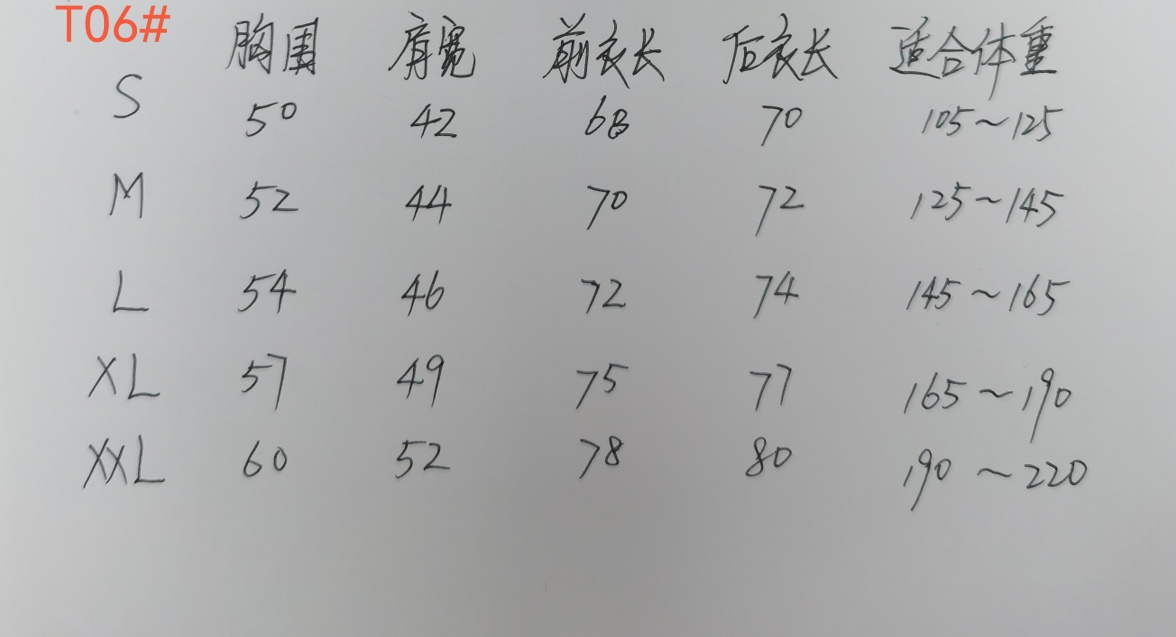 T06#
胸围 肩宽 前衣长 后衣长 适合体重
S 50 42 68 70 105~125
M 52 44 70 72 125~145
L 54 46 72 74 145~165
XL 57 49 75 77 165~190
XXL 60 52 78 80 190~220